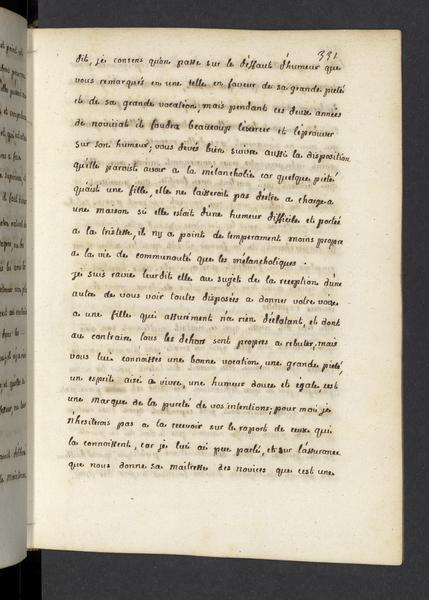 331
dit, je consens qu'on passe sur le deffaut d'humeur que
vous remarqués en une telle en faveur de sa grande pieté
et de sa grande vocation, mais pendant ces deux années
de noviciat il faudra beaucoup l'exercer et l'éprouver
sur son humeur, vous devés bien suivre aussi la disposition
qu'elle paroist avoir a la mélancholie car quelque piété
qu'ait une fille, elle ne laisseroit pas d'estre a charge a
une maison si elle estoit d'une humeur difficile et portée
a la tristesse, il n'y a point de temperament moins propre
a la vie de communauté que les mélancholiques.
je suis ravie leur dit elle au sujet de la reception d'une
autre de vous voir toutes disposées a donner votre voix
a une fille qui assurément n'a rien d'éclatant, et dont
au contraire tous les dehors sont propres a rebuter, mais
vous lui connoissés une bonne vocation, une grande pieté,
un esprit aisé a vivre, une humeur douce et égale, c'est
une marque de la pureté de vos intentions, pour moi je
n'hesiterois pas a la recevoir sur le raport de ceux qui
la connoissent, car je lui ai peu parlé, et sur l'assurance
que nous donne sa maitresse des novices que c'est une